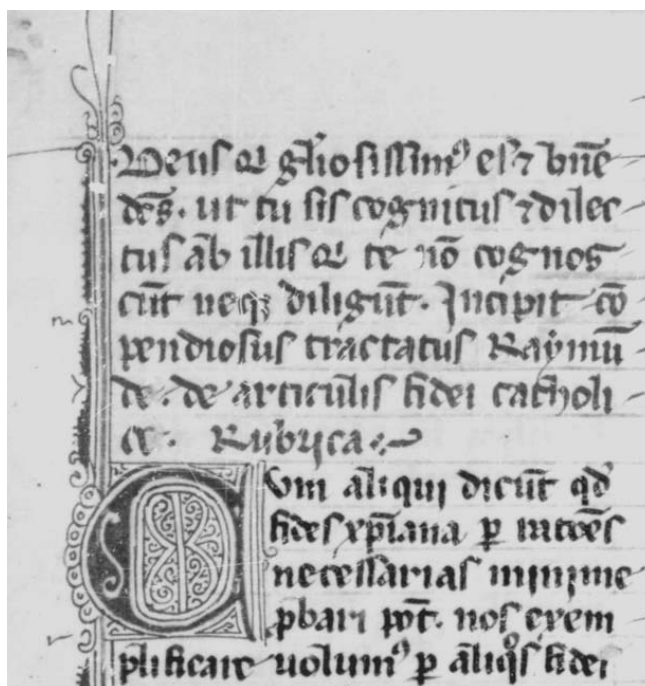 Deus qͥ gl̃iosissimꝰ es ⁊ bñe
dc̃s. ut tu sis cognitus ⁊ dilec
tus ab illis qͥ te nõ cognos
cũt neqꝫ diligũt. Incipit cõ
pendiosus tractatus Raymũ
de. de articulis fidei catholi
ce. Rubrica.
Cum aliqui dicũt qđ
fides xp̃iana ꝑ racões
necessarias minime
ꝓbari põt. nos exem
plificare uolumꝰ ꝑ aliqͦs fidei